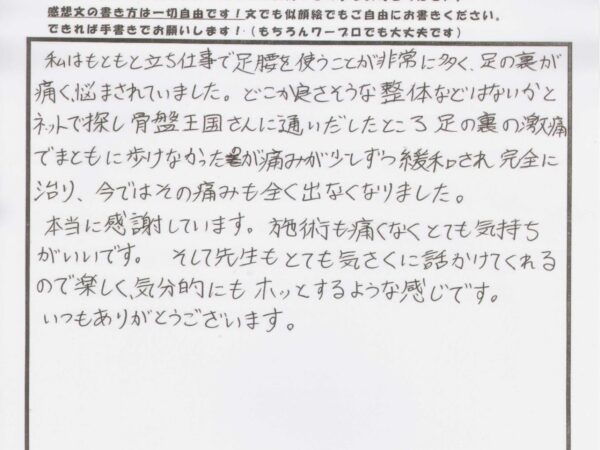 感想文の書き方は一切自由です！文でも似顔絵でもご自由にお書きください。
できれば手書きでお願いします！（もちろんワープロでも大丈夫です）
私はもともと立ち仕事で足腰を使うことが非常に多く、足の裏が
痛く、悩まされていました。どこか良さそうな整体などはないかと
ネットで探し骨盤王国さんに通いだしたところ足の裏の激痛
でまともに歩けなかったが痛みが少しずつ緩和され完全に
治り、今ではその痛みも全く出なくなりました。
本当に感謝しています。施術も痛くなくとても気持ち
がいいです。そして先生もとても気さくに話かけてくれる
ので楽しく、気分的にもホッとするような感じです。
いつもありがとうございます。